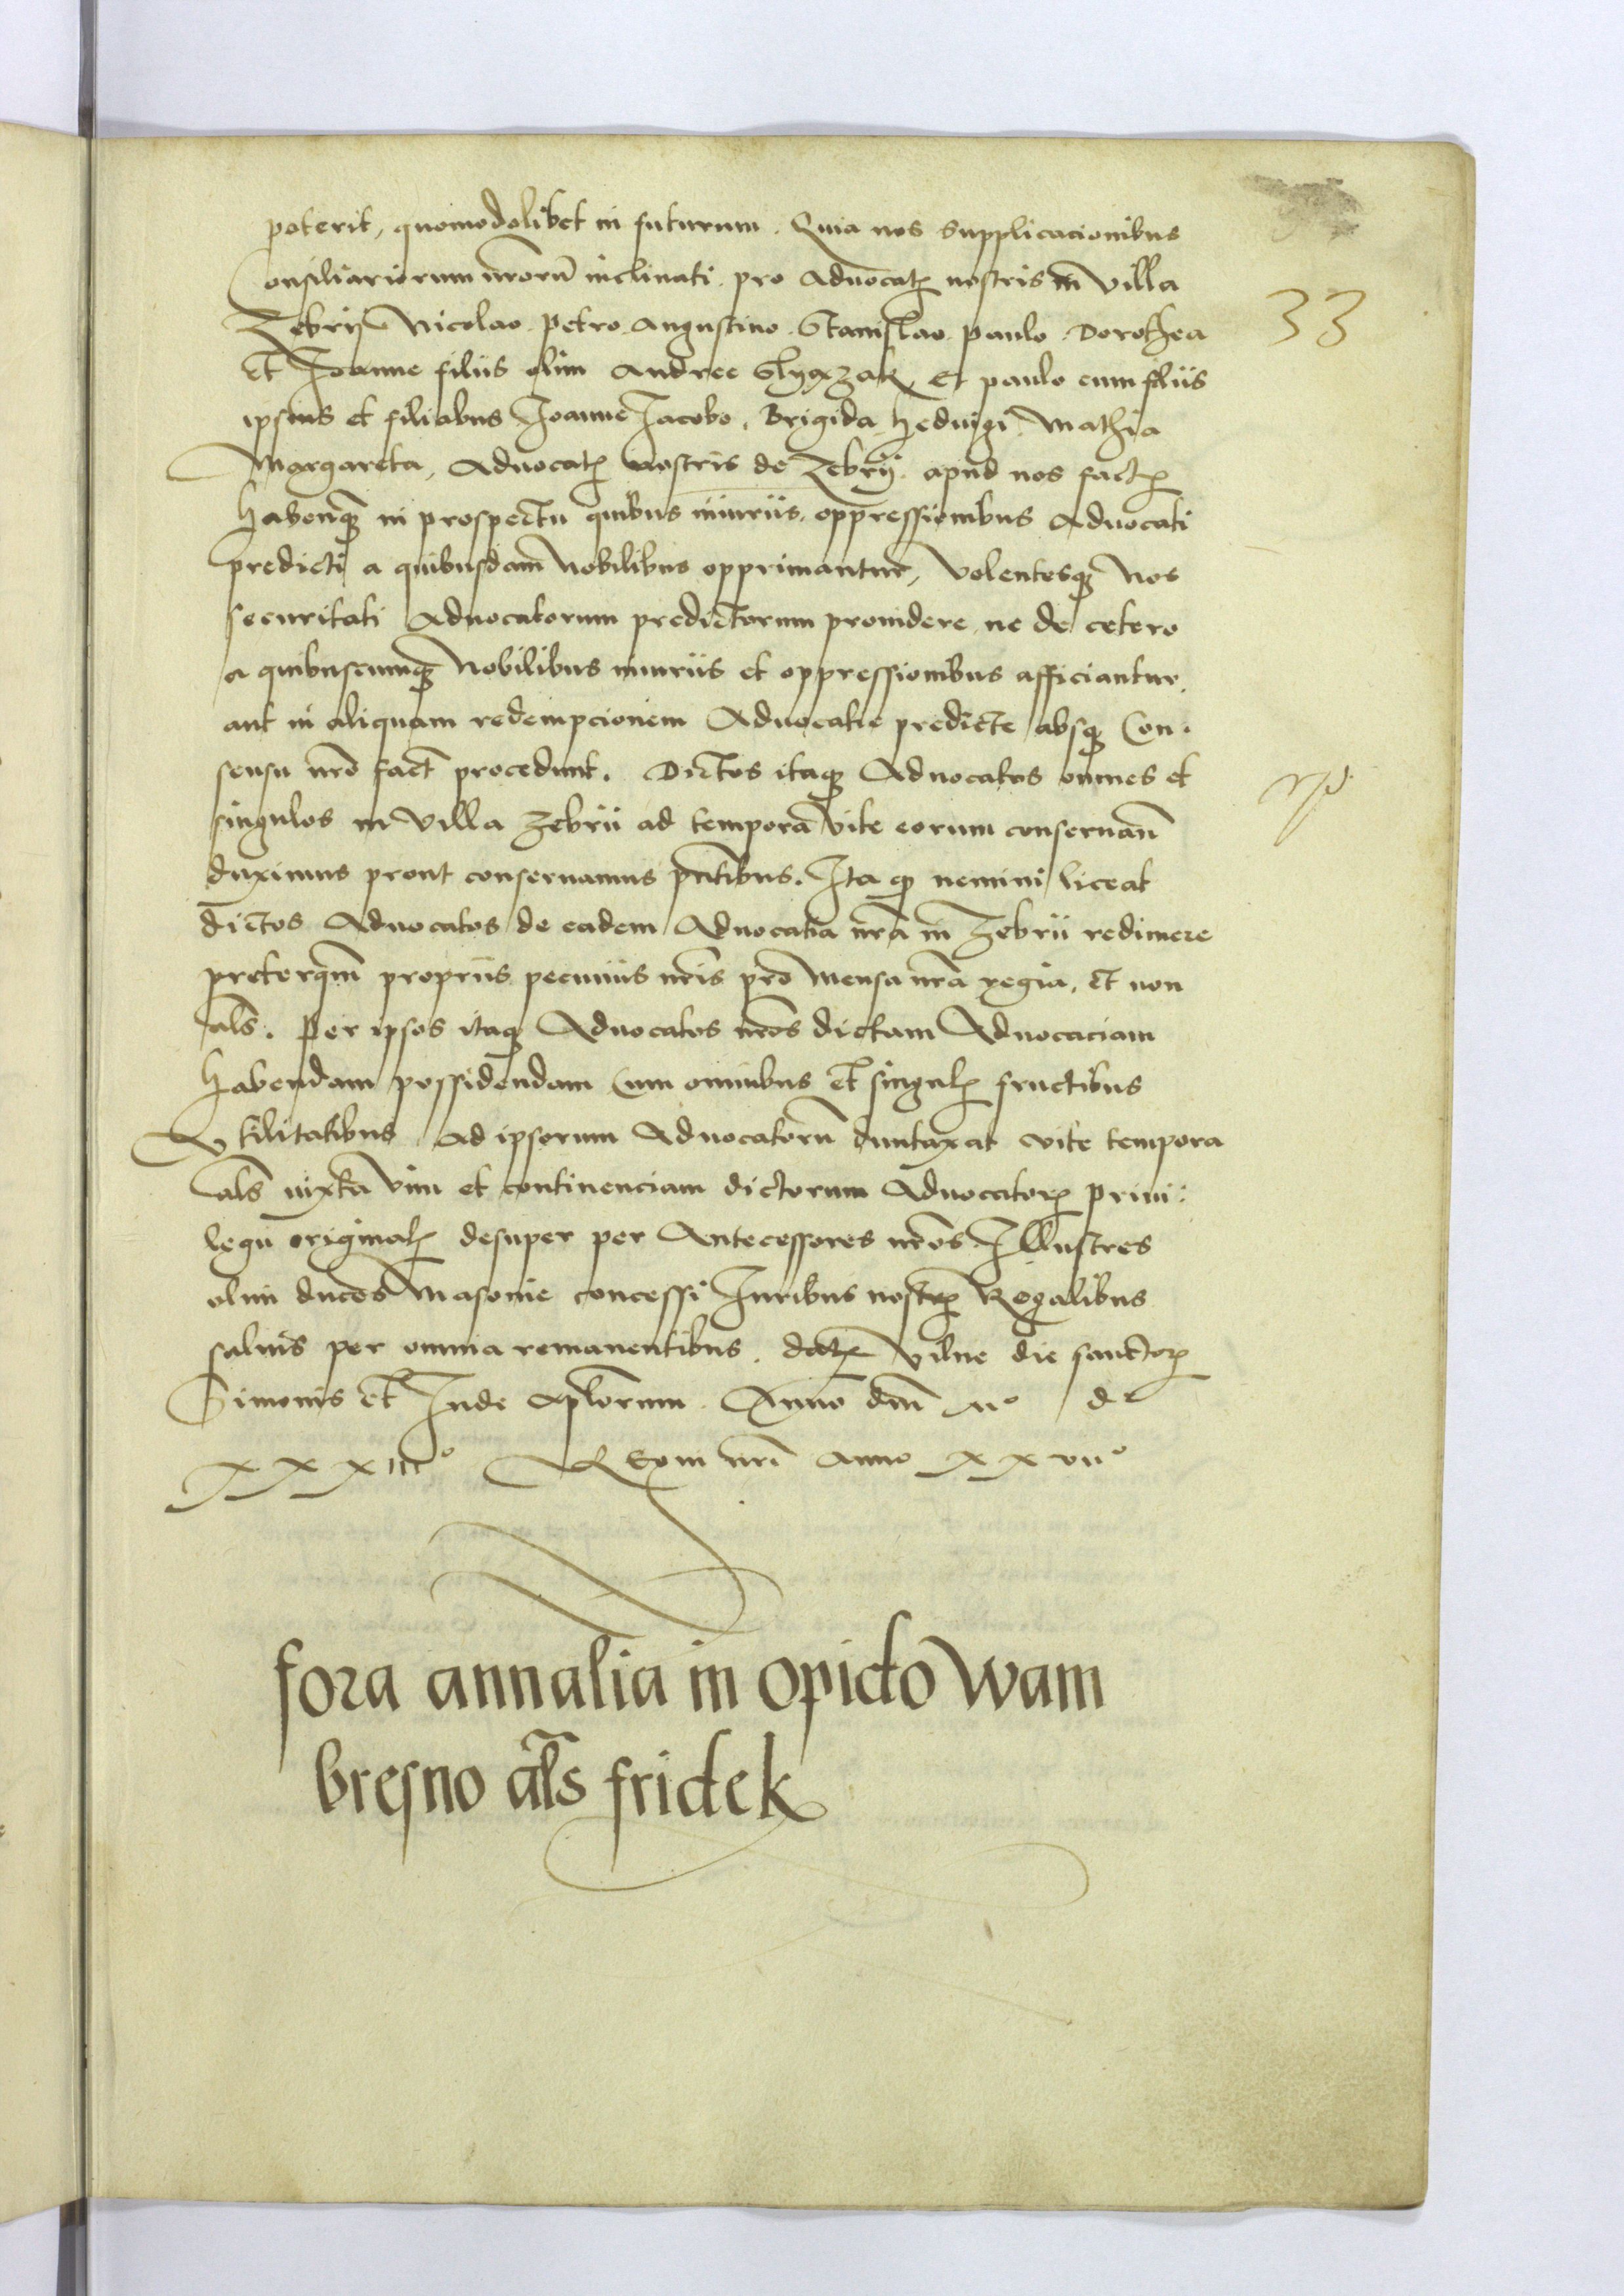 poterit, quomodolibet in futurum. Quia nos supplicacionibus
Consiliariorum nr̄orū inclinati pro Aduocatꝭ nostris in villa
33
Zebrij Nicolao. Petro. Augustino. Stanislao. paulo. Dorothea
Et Joanne filiis olim Andree et paulo cum filiis
ipsius et filiabus Joanne Jacobo, Brigida. Heduigi. Mathia
Margareta, Aduocatꝭ nostris de Zebrij. apud nos factꝭ
habenqꝫ in prospectu quibus iniuriis, oppressionibus Aduocati
predicti a quibusdam Nobilibus opprimantur, Volentesqꝫ nos
securitati Aduocatorum predictorum prouidere, ne de cetero
a quibuscunqꝫ Nobilibus iniuriis et oppressionibus afficiantur,
aut in aliquam redempcionem Aduocatie predicte absqꝫ Con-
sensu nr̄o fact procedunt. Dictos itaqꝫ Aduocatos omnes et
singulos in villa Zebrii ad tempora vite eorum conseruan̄
duximus prout conseruamus pn̄tibus. Ita qꝫ nemini liceat
dictos Aduocatos de eadem Aduocatia nr̄a in Zebrii redimere
preterqm̄ propriis pecuniis nr̄is pro Mensa nr̄a regia, Et non
al̄s. Per ipsos itaqꝫ Aduocatos nr̄os dictam Aduocaciam
habendam possidendam Cum omnibus et singulꝭ fructibus
Vtilitatibus Ad ipsorum Aduocatorū duntaxat vite tempora
al̄s iuxta vim et continenciam dictorum Aduocatorꝭ priui-
legii originalꝭ desuper per Antecessores nr̄os Illustres
olim duces Masouie concessi Juribus nostrꝭ Regalibus
saluis per omnia remanentibus. datꝭ Vilne die sanctorꝭ
Simonis et Jude apl̄orum. Anno dn̄i Mº dº
xxxiiiº Regni nr̄i anno xxviiº
fora annalia in opido Wam
bresno al̄s fridek